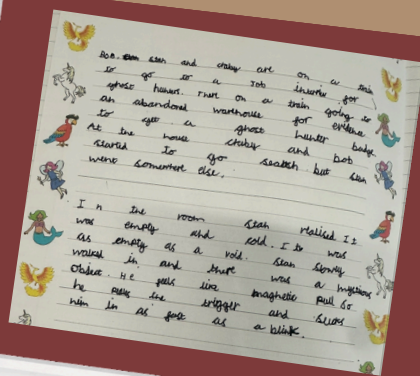 Bob. stan and chaby are on a train
to go to a job interview for
ghost hunters. There on a train going to
an abandoned warehouse for evidence
to get a ghost hunter badge.
At the house chaby and bob
started to go search but stan
went somewhere else.
In the room stan realised It
was empty and cold. It was
as empty as a void. Stan slowly
walked in and there was a mystious
Object. He feels like magnetic pull So
he pulls the trigger and
him in as fast as a blink.